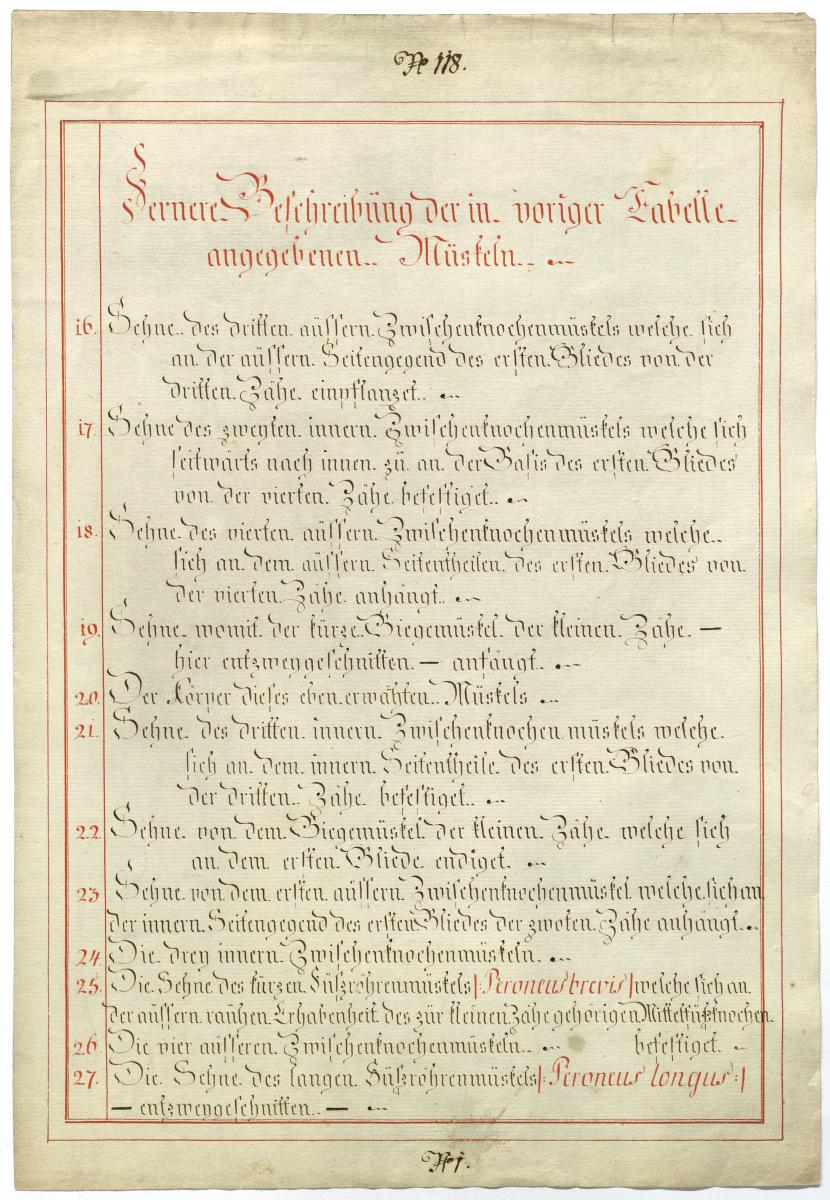 No 118.
Fernere Beschreibüng der in voriger Tabelle
angegebenen Müskeln
16. Sehne des dritten äüssern Zwischenknochenmüskels welche sich
an der äüssern Seitengegend des ersten Gliedes von der
dritten Zähe einpflanzet.
17. Sehne des zweyten innern Zwischenknochenmüskels welche sich
seitwärts nach innen zü an der Basis des ersten Gliedes
von der vierten Zähe befestiget.
18. Sehne des vierten äüssern Zwischenknochenmüskels welche
sich an dem äüssern Seitentheilen des ersten Gliedes von
der vierten Zähe anhängt.
19. Sehne womit der kürze Biegemüskel der kleinen Zähe —
hier entzweygeschnitten — anfängt.
20. Der Körper dieses eben erwähten Müskels
21. Sehne des dritten innern Zwischenknochenmüskels welche
sich an dem innern Seitentheile des ersten Gliedes von
der dritten Zähe befestiget.
22. Sehne von dem Biegemüskel der kleinen Zähe welche sich
an dem ersten Gliede endiget.
23 Sehne von dem ersten äüssern Zwischenknochenmüskel welche sich an
der innern Seitengegend des ersten Gliedes der zwoten Zähe anhängt.
24. Die drey innern Zwischenknochenmüskeln.
25. Die Sehne des kürzen Füßröhrenmüskels |: Peroneus brevis | welche sich an
der äüssern raühen Erhabenheit des zür kleinen Zähe gehörigen Mittelfüßknochen
26. Die vier äüsseren Zwischenknochenmüskeln. befestiget.
27. Die Sehne des langen Füßröhrenmüskels |: Peroneus longus :|
— entzweygeschnitten. —
No 1.